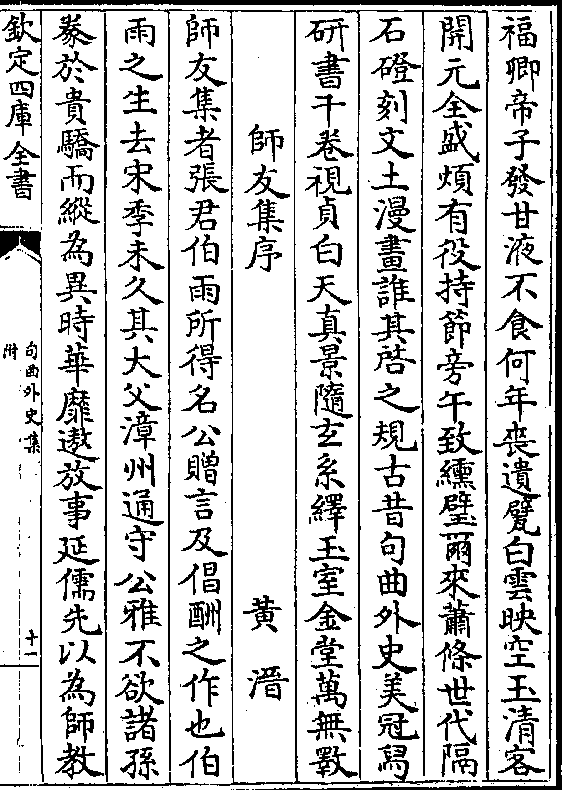 福卿帝子發甘液不食何年喪遺甓白雲映空玉清客
開元全盛煩有役持節旁午致纁璧爾來蕭條世代隔
石磴刻文土漫畫誰其啓之規古昔句曲外史美冠舄
研書千卷視貞白天真景隨玄系繹玉室金堂萬無斁
師友集序
黄溍
師友集者張君伯雨所得名公贈言及倡酬之作也伯
雨之生去宋季未久其大父漳州通守公雅不欲諸孫
豢於貴驕而縱為異時華靡遨放事延儒先以為師教
欽定四庫全書
句曲外史集
附
十一